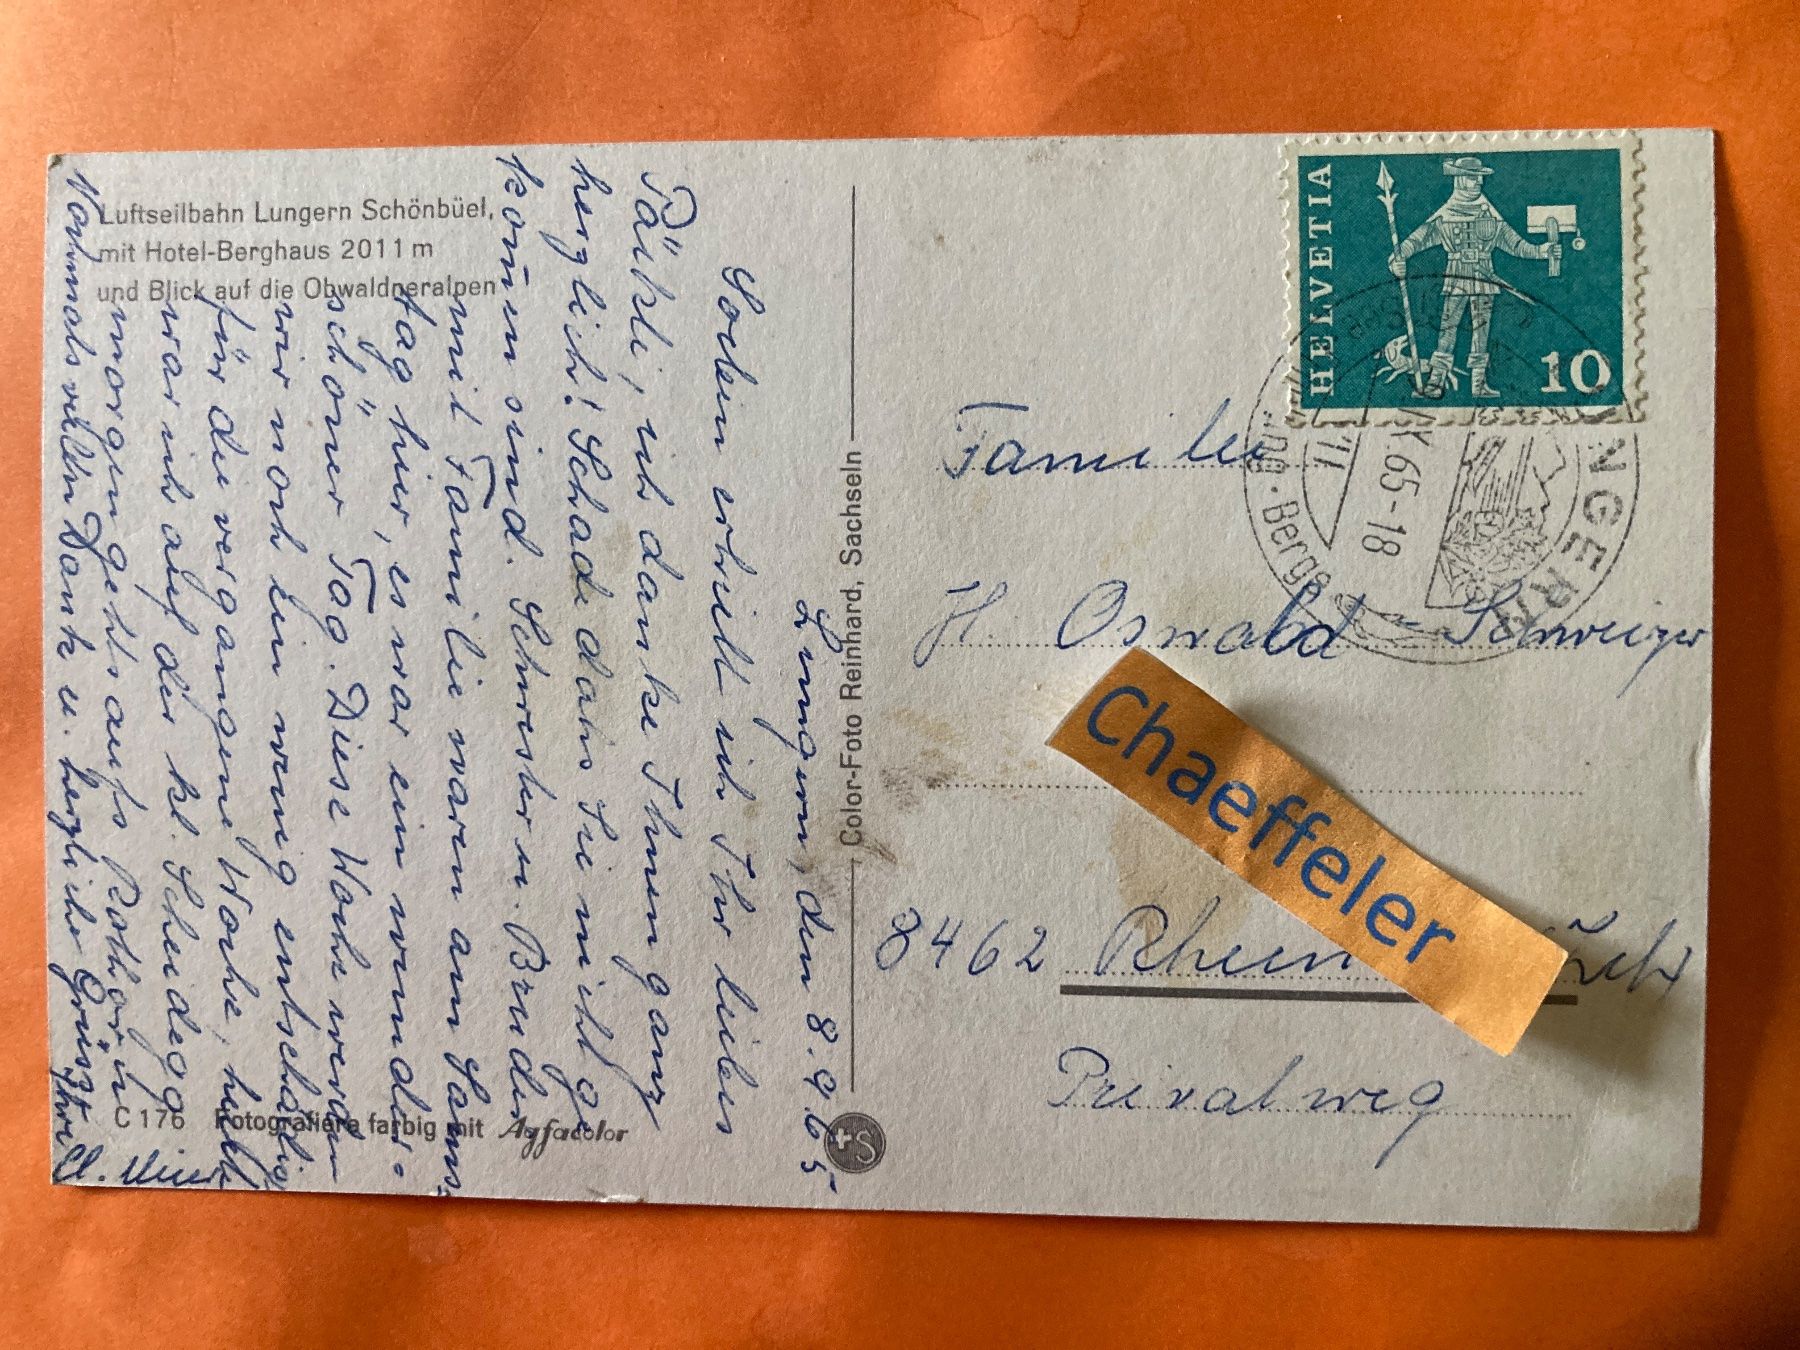 Luftseilbahn Lungern Schönbüel,
mit Hotel-Berghaus 2011 m
und Blick auf die Obwaldneralpen
Lungern, den 8.9.65
Soeben erhielt ich Ihr liebes
Päckli, ich danke Ihnen ganz
herzlich! Schade dass Sie nicht ge
kommen sind. Schwester u. Bruder
mit Familie waren am Sams-
tag hier, es war ein wunder-
schöner Tag. Diese Woche werden
wir noch ein wenig entschädigt
für die vergangene Woche, heute
war ich auf der kl. Scheidegg
morgen gehts aufs Rothorn
Nochmals vielen Dank u. herzliche Grüsse
Ihre
C 176 Fotografiere farbig mit Agfacolor
Color-Foto Reinhard, Sachseln
S
HELVETIA
10
65-18
Familie
H. Oswald - Schweizer
Chaeffeler
8462 Rhein
Privatweg